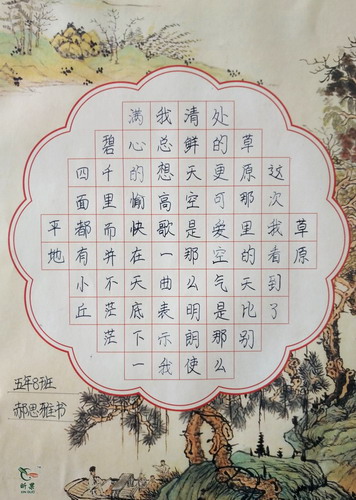 草原
这次我看到了
草原那里的天比别
处的更可矣空气是那么
清鲜天空是那么明朗使
我总想高歌一曲表示我
满心的愉快在天底下一
碧千里而并不茫茫
四面都有小丘
平地
五年8班
郝思雅书
昕果